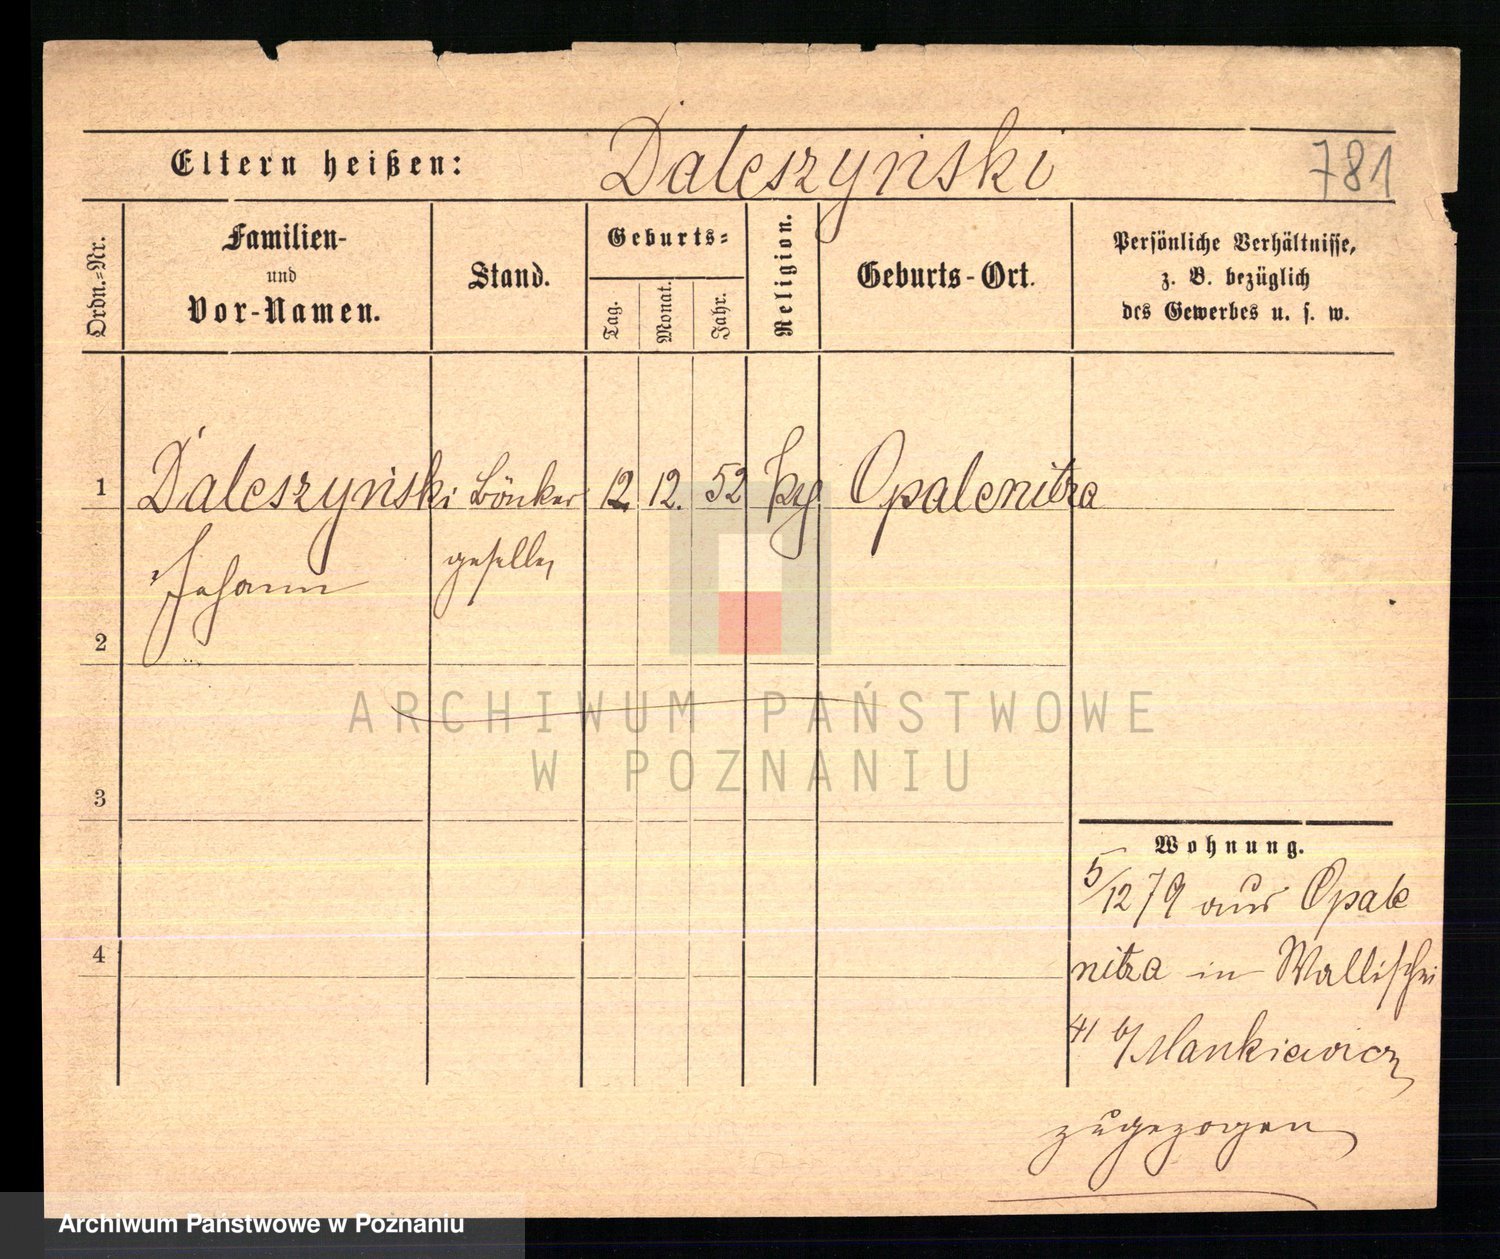 Eltern heißen: Daleszyński 781
Ordn.-Nr.
Familien-
und
Vor-Namen.
Stand.
Geburts=
Tag.
Monat.
Jahr.
Religion.
Geburts-Ort.
Persönliche Verhältnisse,
z. B. bezüglich
des Gewerbes u. s. w.
1 Daleszyński 12 12. 52 Opalenitza
Johann geselle
2
3
4
Wohnung.
5/12 79 aus Opale
nitza in Wallischei
41 b/ Mankiewicz
zugezogen
ARCHIWUM PAŃSTWOWE
W POZNANIU
Archiwum Państwowe w Poznaniu